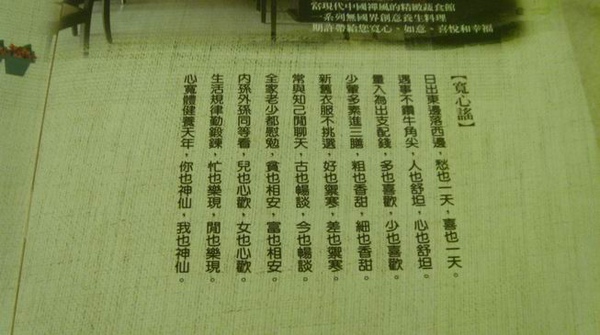 當現代中國禪風的精緻蔬食館
一系列無國界創意養生料理
期許帶給您寬心、如意、喜悅和幸福
【寬心謠】
日出東邊落西邊，愁也一天，喜也一天。
遇事不鑽牛角尖，人也舒坦，心也舒坦。
量入為出支配錢，多也喜歡，少也喜歡。
少葷多素進三膳，粗也香甜，細也香甜。
新舊衣服不挑選，好也禦寒，差也禦寒。
常與知己閒聊天，古也暢談，今也暢談。
全家老少都慰勉，貧也相安，富也相安。
內孫外孫同等看，兒也心歡，女也心歡。
生活規律勤鍛鍊，忙也樂現，閒也樂現。
心寬體健養天年，你也神仙，我也神仙。